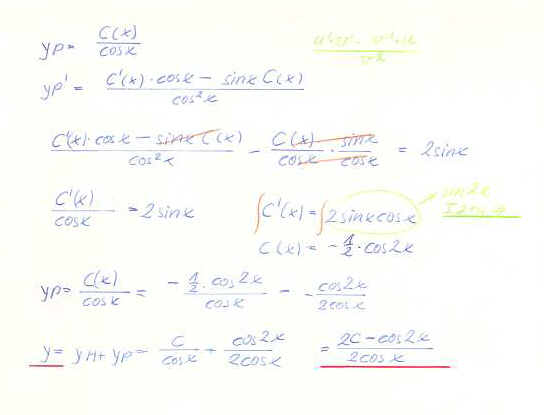 yp = C(x)/cosx
u'·v - v'·u/v²
yp' = C'(x)·cosx - sinx C(x)/cos²x
C'(x)·cosx - sinx C(x)/cos²x - C(x)/cosx · sinx/cosx = 2sinx
C'(x)/cosx = 2sinx
∫C'(x) = ∫2sinxcosx
sin2x
C(x) = -1/2·cos2x
yp = C(x)/cosx = -1/2·cos2x/cosx = -cos2x/2cosx
y = yH + yp = C/cosx - cos2x/2cosx = 2C - cos2x/2cosx